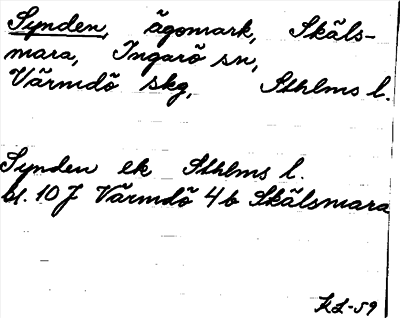 Synden, ägomark, Skäls-
mara, Ingarö sn,
Värmdö skg, Sthlms l.
Synden ek Sthlms l.
bl. 10 J Värmdö 4b Skälsmara
KL-59